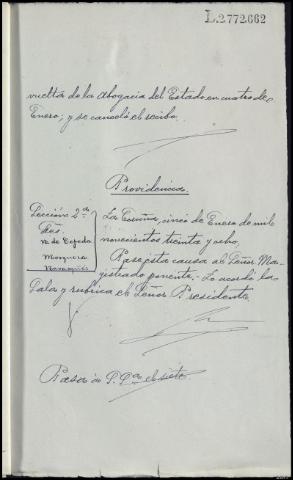 L.2772.662
vuelta de la Abogacía del Estado en cuatro de
Enero; y se canceló el recibo.
Providencia
Sección 2ª
Sres.
de Cepeda
Mosquera
La Coruña, cinco de Enero de mil
novecientos treinta y ocho.
Pase esta causa al Señor Ma-
gistrado ponente.- Lo acordó la
Sala y rubrica el Señor Presidente.
Pasa a S. Sª el siete